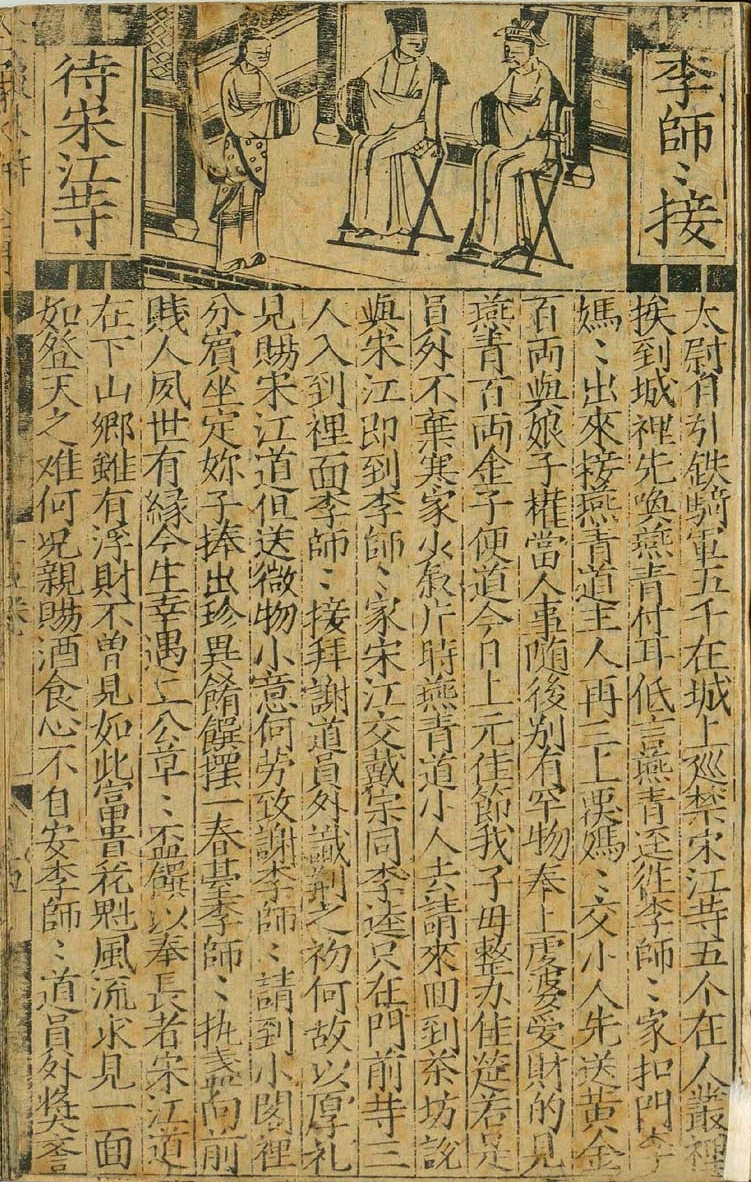 李師〻接
待宋江䓁
太尉自引鉄騎軍五千在城上廵禁宋江䓁五个在人叢裡
挨到城裡先喚燕青付耳低言燕青迳往李師〻家扣門李
媽〻出來接燕青道主人再三上覆媽〻交小人先送黃金
百両與娘子權當人事随後别有罕物奉上虔婆愛財的見
燕青百両金子便道今日上元佳節我子母整办佳筵若是
員外不棄寒家少敘片時燕青道小人去請來囬到茶坊說
與宋江即到李師〻家宋江交戴宗同李逵只在門前䓁三
人入到裡面李師〻接拜謝道員外識荆之初何故以厚礼
見賜宋江道但送微物小意何劳致謝李師〻請到小閣裡
分賓坐定妳子捧出珍異餚饌擺一春䑓李師〻执盞向前
賤人夙世有緣今生幸遇二公草〻盃饌以奉長者宋江道
在下山鄉雖有浮財不曽見如此富貴花魁風流求見一面
如登天之难何况親賜酒食心不自安李師〻道員外奬誉